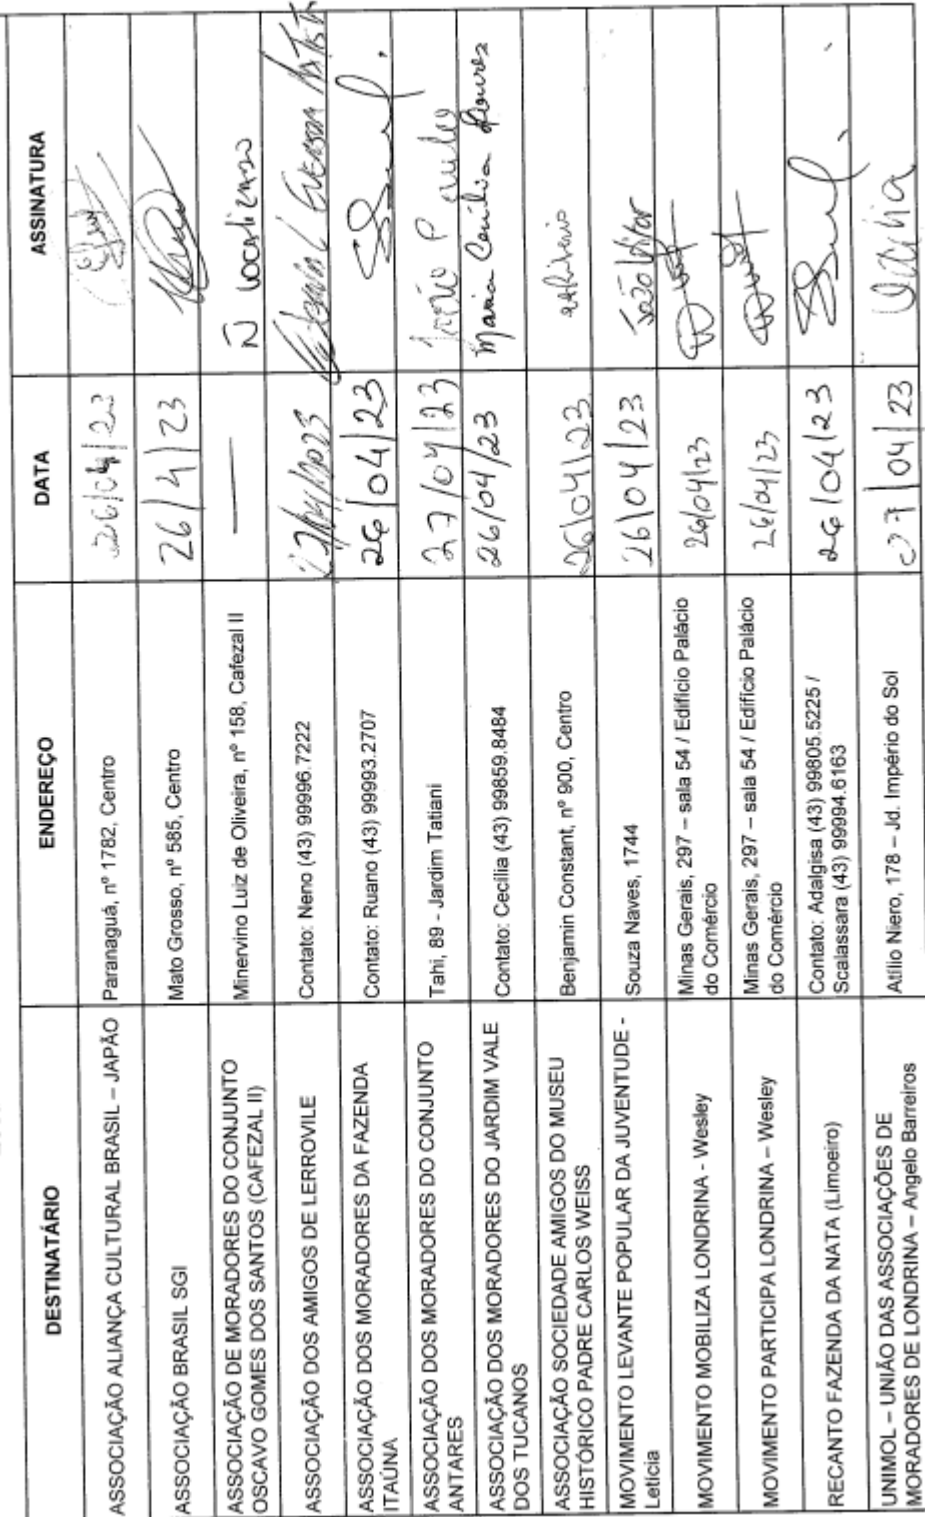 DESTINATÁRIO ENDEREÇO DATA ASSINATURA
ASSOCIAÇÃO ALIANÇA CULTURAL BRASIL – JAPÃO Paranaguá, nº 1782, Centro 26/04/23
ASSOCIAÇÃO BRASIL SGI Mato Grosso, nº 585, Centro 26/4/23
ASSOCIAÇÃO DE MORADORES DO CONJUNTO
OSCAVO GOMES DOS SANTOS (CAFEZAL II) Minervino Luiz de Oliveira, nº 158, Cafezal II — Ñ localizado
ASSOCIAÇÃO DOS AMIGOS DE LERROVILE Contato: Neno (43) 99996.7222
ASSOCIAÇÃO DOS MORADORES DA FAZENDA
ITAÚNA Contato: Ruano (43) 99993.2707 26/04/23
ASSOCIAÇÃO DOS MORADORES DO CONJUNTO
ANTARES Tahi, 89 - Jardim Tatiani 27/04/23
ASSOCIAÇÃO DOS MORADORES DO JARDIM VALE
DOS TUCANOS Contato: Cecília (43) 99859.8484 26/04/23 Maria Cecília
ASSOCIAÇÃO SOCIEDADE AMIGOS DO MUSEU
HISTÓRICO PADRE CARLOS WEISS Benjamin Constant, nº 900, Centro 26/04/23
MOVIMENTO LEVANTE POPULAR DA JUVENTUDE -
Letícia Souza Naves, 1744 26/04/23 João Vitor
MOVIMENTO MOBILIZA LONDRINA - Wesley Minas Gerais, 297 – sala 54 / Edifício Palácio
do Comércio 26/04/23
MOVIMENTO PARTICIPA LONDRINA – Wesley Minas Gerais, 297 – sala 54 / Edifício Palácio
do Comércio 26/04/23
RECANTO FAZENDA DA NATA (Limoeiro) Contato: Adalgisa (43) 99805.5225 /
Scalassara (43) 99994.6163 26/04/23
UNIMOL – UNIÃO DAS ASSOCIAÇÕES DE
MORADORES DE LONDRINA – Angelo Barreiros Atílio Niero, 178 – Jd. Império do Sol 27/04/23